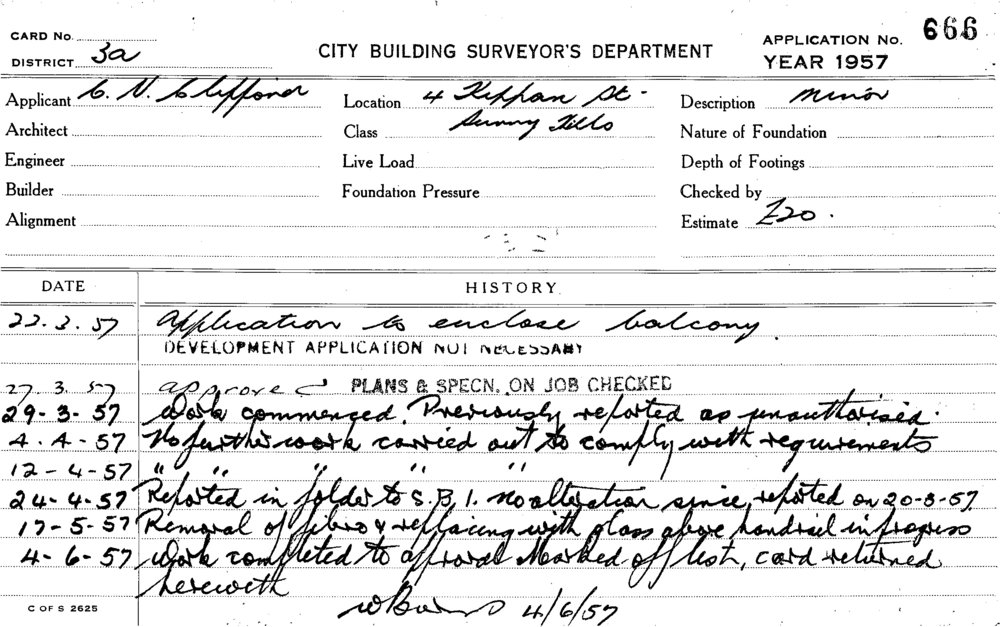 CARD No.
DISTRICT 3a
CITY BUILDING SURVEYOR'S DEPARTMENT
APPLICATION No. 666
YEAR 1957
Applicant C. V.
Location 4 Kippax St.
Description Minor
Architect
Class Surry Hills
Nature of Foundation
Engineer
Live Load
Depth of Footings
Builder
Foundation Pressure
Checked by
Alignment
Estimate £20.
DATE
HISTORY.
22.3.57 Application to enclose balcony.
DEVELOPMENT APPLICATION NOT NECESSARY
27.3.57 approved PLANS & SPECN. ON JOB CHECKED
29-3-57 Work commenced. Previously reported as unauthorised.
4.4-57 No further work carried out to comply with requirements
12-4-57 " " " " "
24-4-57 Reported in folder to S.B.I. no alteration since reported on 20-3-57.
17-5-57 Removal of fibro & replacing with glass above handrail in progress
4-6-57 Work completed to approval Marked off list, card returned
herewith
4/6/57
C OF S 2625